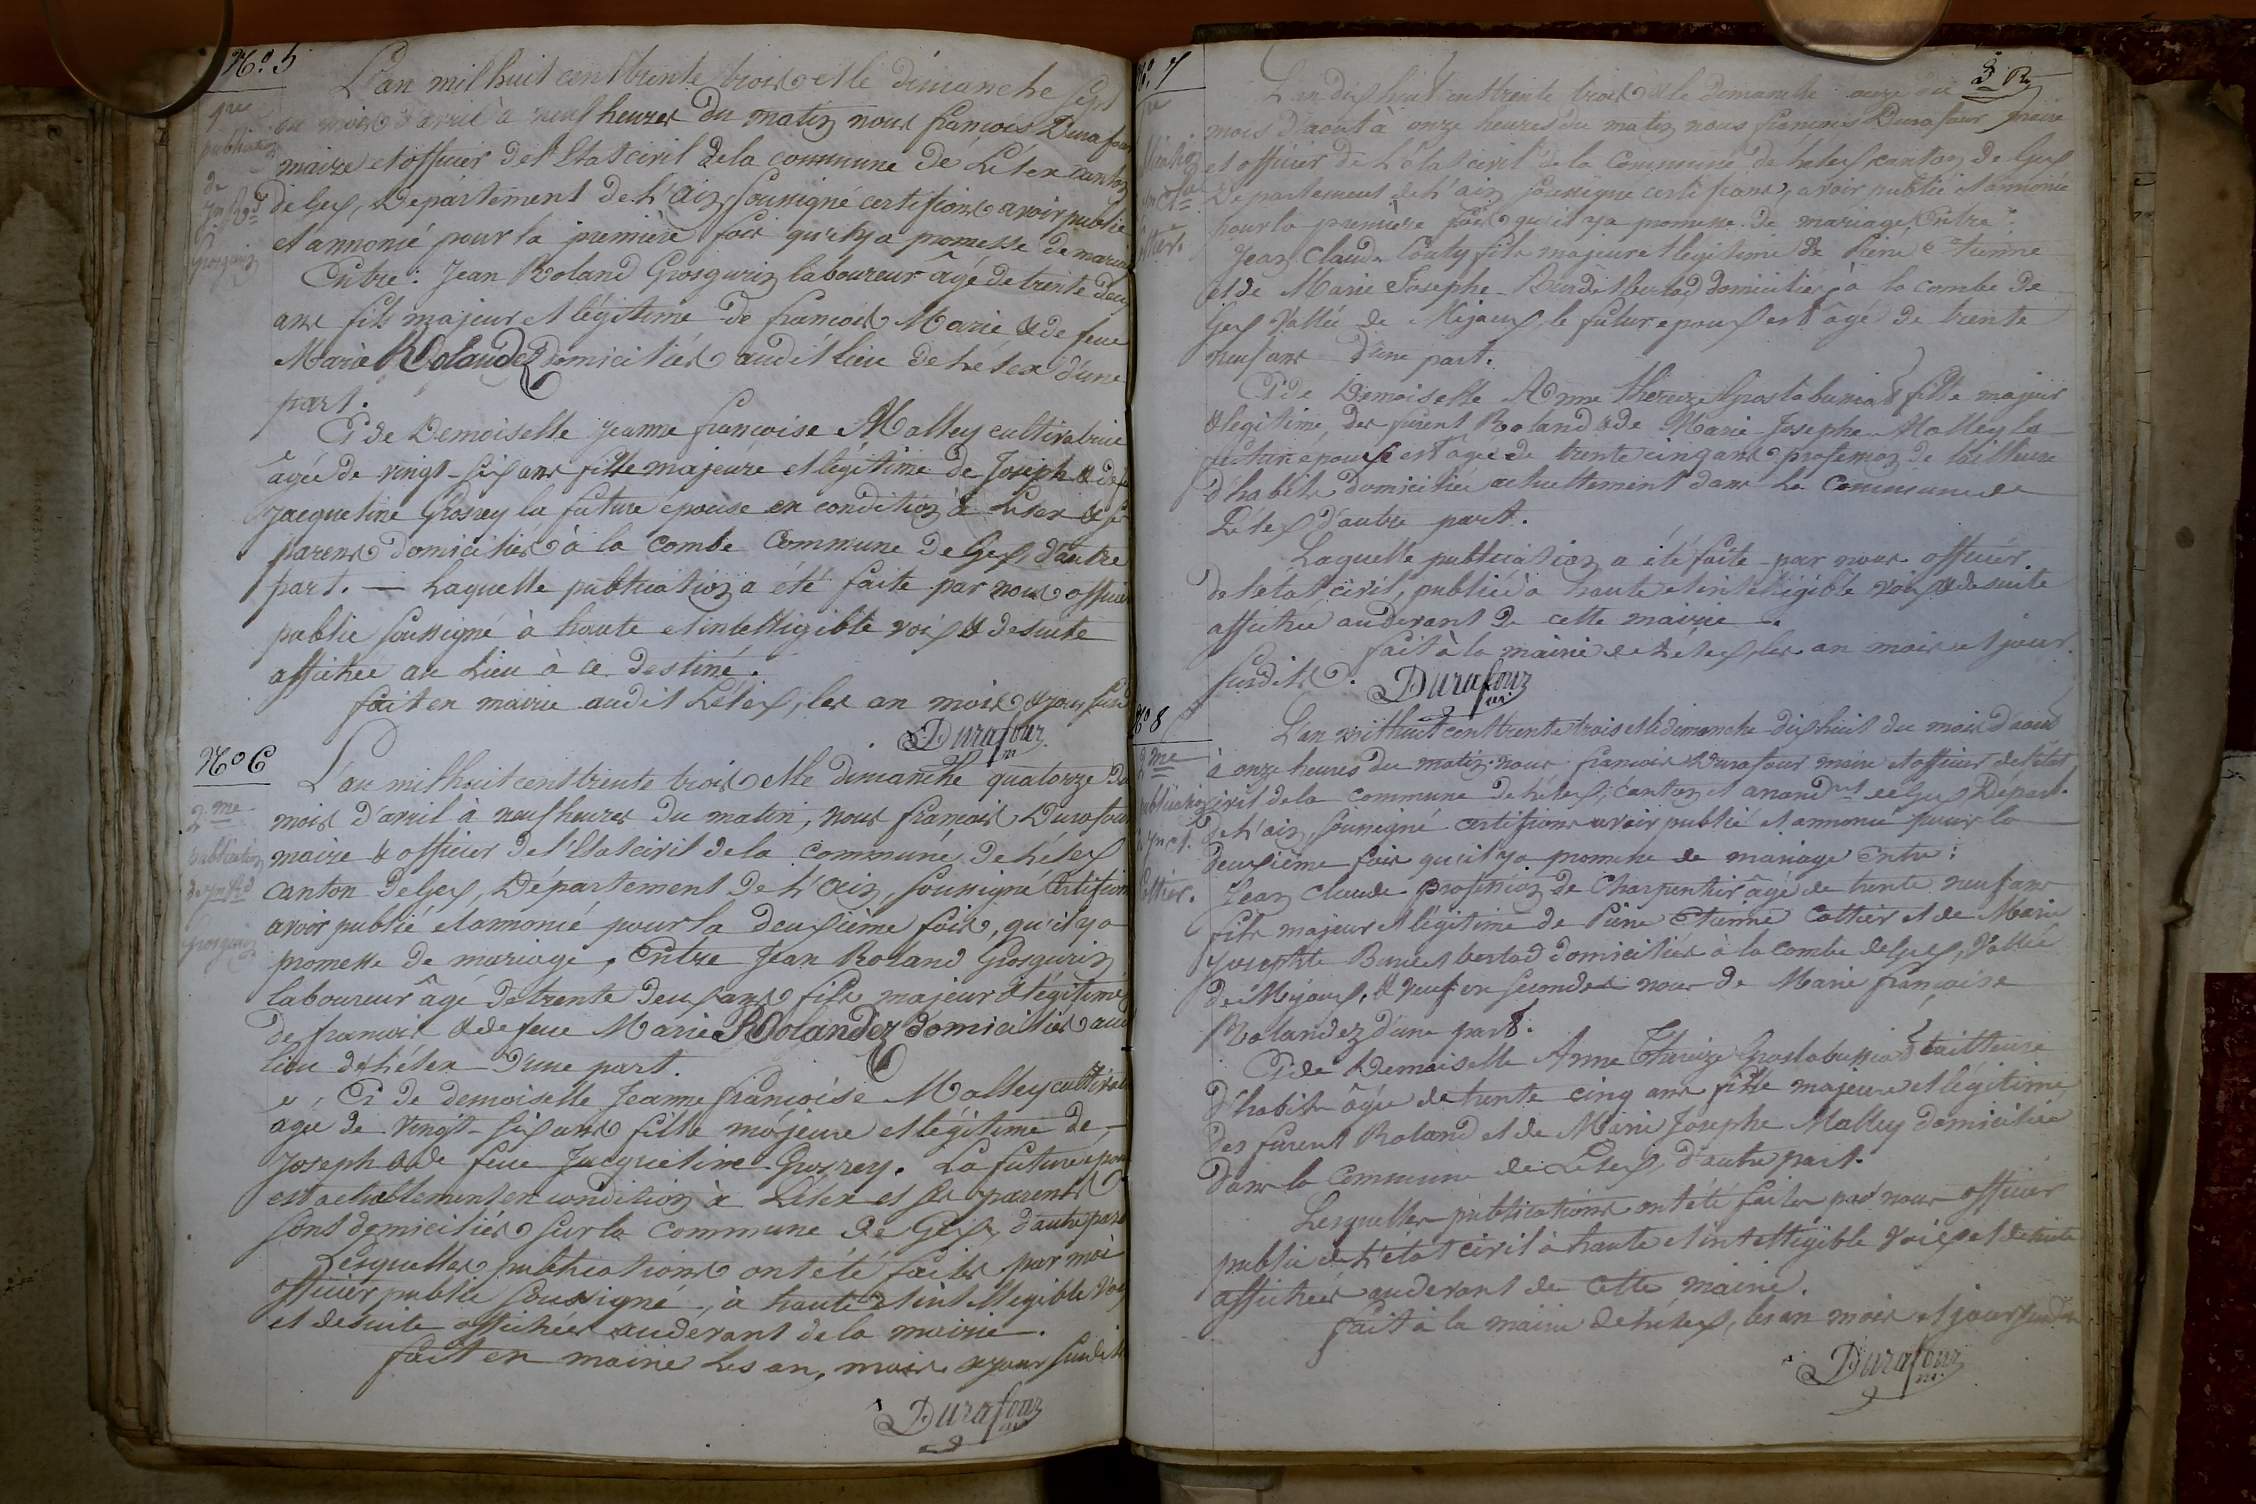 N.º 5
1ere
publication
de
Jn Rd
Grosgurin
L'an mil huit cent trente trois et le dimanche sept
du mois d'avril à neuf heures du matin nous françois Durafour
maire et officier de l'Etat civil de la commune de Lélex canton
de Gex, Département de L'ain soussigné certifions avoir publié
et annoncé pour la première fois qu'il y a promesse de mariage
Entre: Jean Roland Grosgurin laboureur âgé de trente deux
ans fils majeur et légitime de françois Marie & de feue
Marie Rolandez domiciliés audit lieu de Lélex d'une
part.
Et de Demoiselle Jeanne françoise Malley cultivatrice
agée de vingt-six ans fille majeure et légitime de Joseph & de
Jacqueline Grosrey la future épouse en condition à Lélex & ses
parens domiciliés à la combe Commune de Gex d'autre
part. — Laquelle publication a été faite par nous officier
public soussigné à haute et intelligible voix & de suite
affichée au Lieu à ce destiné.
fait en mairie audit Lélex, les an mois & jour susd
Durafour
N.º 6
2.me
publication
de Jn Rd
Grosgurin
L'an mil huit cent trente trois et le dimanche quatorze du
mois d'avril à neuf heures du matin, nous françois Durafour
maire & officier de l'Etat civil de la commune de Lélex
canton de Gex, Département de L'ain, soussigné Certifions
avoir publié et annoncé pour la deuxième fois, qu'il y a
promesse de mariage, Entre Jean Roland Grosgurin
laboureur âgé de trente deux ans fils majeur & légitime
de françois & de feue Marie Rolandez domiciliés aud
lieu de Lélex d'une part.
Et de demoiselle Jeanne françoise Malley cultivat
agée de vingt-six ans fille majeure et légitime de
Joseph & de feue Jacqueline Grosrey. La future épou
est actuellement en condition à Lélex et ses parents
sont domiciliés sur la commune de Gex, d'autre part
Lesquelles publications ont été faites par moi
officier public soussigné, à haute et intelligible voix
et de suite affichées au devant de la mairie.
fait en mairie Les an, mois & jour susdits
Durafour
N.º 7
Jn Cl.
Cottier.
L'an dix huit cent trente trois & le Dimanche onze du
mois d'aout à onze heures du matin nous françois Durafour maire
et officier de L'état civil de la Commune de Lelex canton de Gex
Département de L'ain soussigné certifions, avoir publié et annoncé
pour la première fois qu'il y a promesse de mariage Entre:
Jean Claude fils majeur et légitime de Pierre Etienne
et de Marie Josephe domiciliés à la combe de
Gex Vallée de Mijoux, le futur epoux est âgé de trente
neuf ans d'une part.
Et de Demoiselle Anne théreize Groslabussiat fille majeur
& légitime des furent Roland & de Marie Josephe Malley la
future épouse est agée de trente cinq ans profession de tailleuse
d'habits domiciliée actuellement dans la Commune de
Lélex d'autre part.
Laquelle publication a été faite par nous officier
de letat civil, publiée à haute et intelligible voix & de suite
affichée au devant de cette mairie.
fait à la mairie de Lélex, les an mois et jour
susdits. Durafour
N.º 8
2.me
publication
Jn Cl.
Cottier.
L'an mil huit cent trente trois et le dimanche dix huit du mois d'aout
à onze heures du matin nous françois Durafour maire et officier de l'état
civil de la commune de Lélex, canton et arrond.nt de Gex Départ.
de L'ain, soussigné certifions avoir publié et annoncé pour la
deuxième fois qu'il y a promesse de mariage Entre:
Jean Claude profession de Charpentier âgé de trente neuf ans
fils majeur et légitime de Pierre Etienne Cottier et de Marie
Josephte domiciliés à la combe de Gex, Vallée
de Mijoux, & veuf en secondes noces de Marie françoise
Rolandez d'une part.
Et de Demoiselle Anne Théreize Groslabussiat tailleuse
d'habits âgée de trente cinq ans fille majeure et légitime
des furent Roland et de Marie Josephe Malley domiciliée
dans la Commune de Lélex, d'autre part.
Lesquelles publications ont été faites par nous officier
public de L'état civil à haute et intelligible voix et de suite
affichées au devant de cette mairie.
fait à la mairie de Lélex, les an mois et jour susdits
Durafour